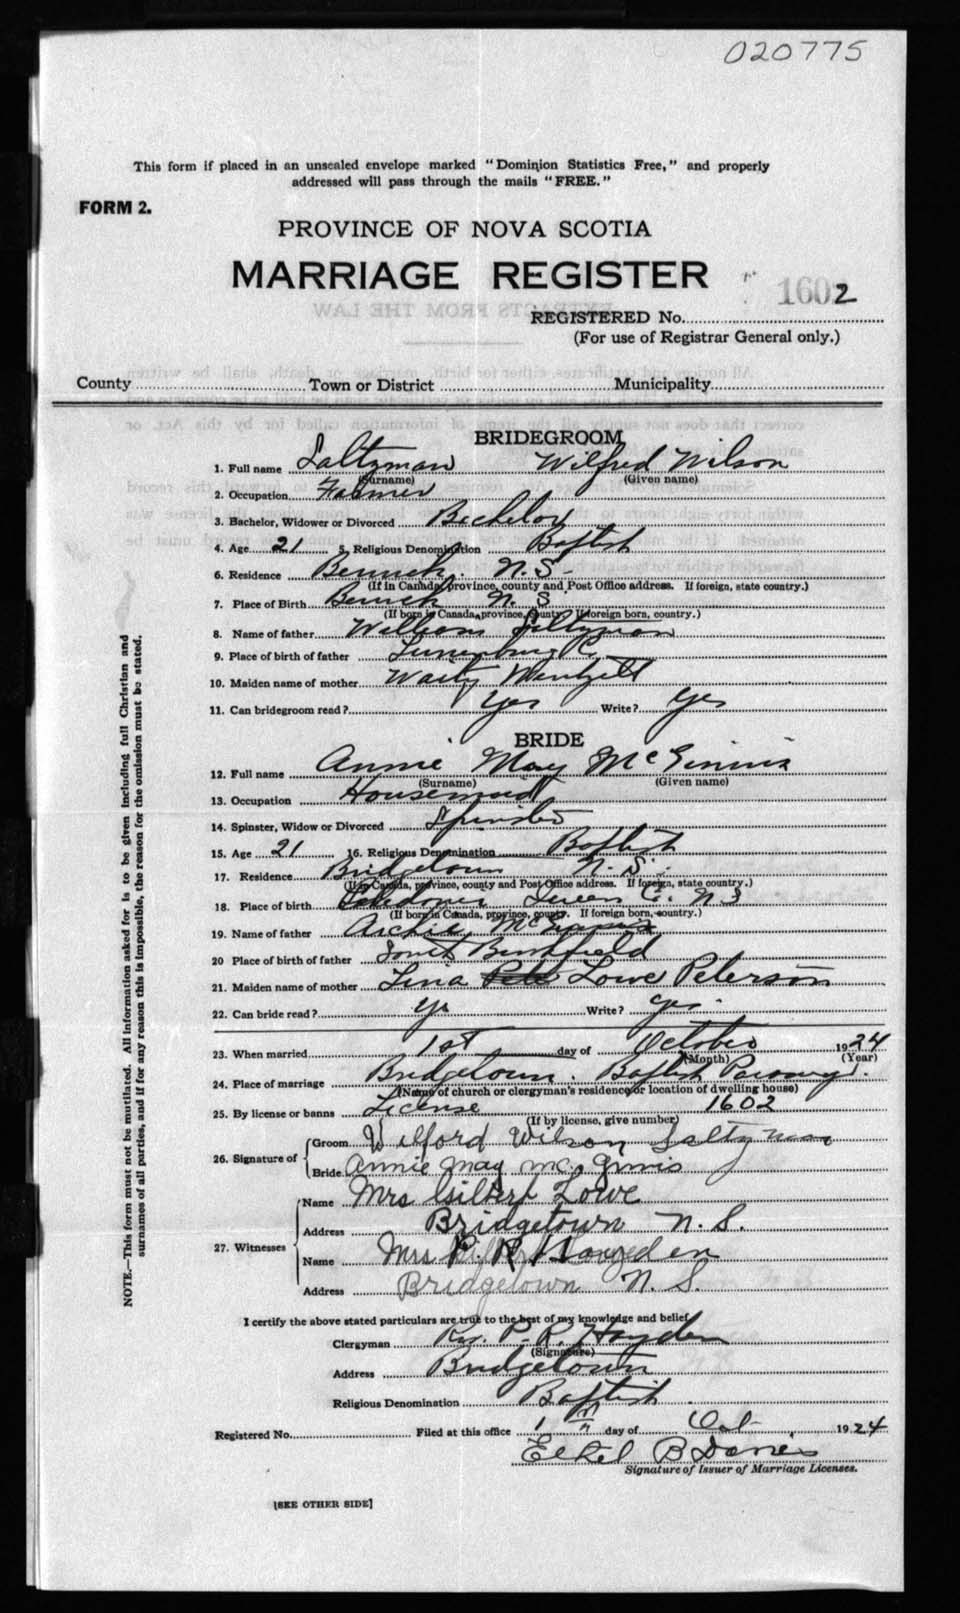 020775
This form if placed in an unsealed envelope marked "Dominion Statistics Free," and properly
addressed will pass through the mails "FREE."
FORM 2.
PROVINCE OF NOVA SCOTIA
MARRIAGE REGISTER
1602
REGISTERED No.
(For use of Registrar General only.)
County Town or District Municipality
BRIDEGROOM
1. Full name Saltzman Wilfred Wilson
(Surname) (Given name)
2. Occupation Farmer
3. Bachelor, Widower or Divorced Bachelor
4. Age 21 5. Religious Denomination Baptist
6. Residence Berwick N.S.
(If in Canada, province, county and Post Office address. If foreign, state country.)
7. Place of Birth Berwick N.S.
(If born in Canada, province, county. If foreign born, country.)
8. Name of father William Saltzman
9. Place of birth of father Lunenburg Co.
10. Maiden name of mother Waity Wentzell
11. Can bridegroom read? Yes Write? Yes
BRIDE
12. Full name Annie May McGinnis
(Surname) (Given name)
13. Occupation Housemaid
14. Spinster, Widow or Divorced Spinster
15. Age 21 16. Religious Denomination Baptist
17. Residence Bridgetown N.S.
(If in Canada, province, county and Post Office address. If foreign, state country.)
18. Place of birth Caledonia Queens C. N.S
(If born in Canada, province, county. If foreign born, country.)
19. Name of father Archie McGinnis
20 Place of birth of father South
21. Maiden name of mother Lina Lowe Peterson
22. Can bride read? ye Write? yes.
23. When married 1st day of October 1924
(Month) (Year)
24. Place of marriage Bridgetown Baptist Parsonage.
(Name of church or clergyman's residence or location of dwelling house)
25. By license or banns License 1602
(If by license, give number)
26. Signature of Groom Wilford Wilson Saltzman
Bride Annie May Mc. Ginis
27. Witnesses
Name Mrs Gilbert Lowe
Address Bridgetown N.S.
Name Mrs P. R. Hayden
Address Bridgetown N.S.
I certify the above stated particulars are true to the best of my knowledge and belief
Clergyman Rev. P. R. Hayden
(Signature)
Address Bridgetown
Religious Denomination Baptist
Registered No. Filed at this office 1st day of Oct 1924
Ethel B Davies
Signature of Issuer of Marriage Licenses.
[SEE OTHER SIDE]
NOTE.—This form must not be mutilated. All information asked for is to be given including full Christian and
surnames of all parties, and if for any reason this is impossible, the reason for the omission must be stated.